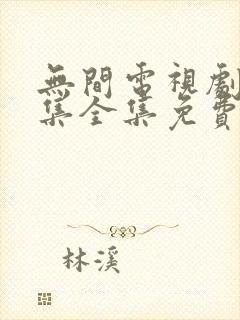 無間電視劇
集全集免費
林溪